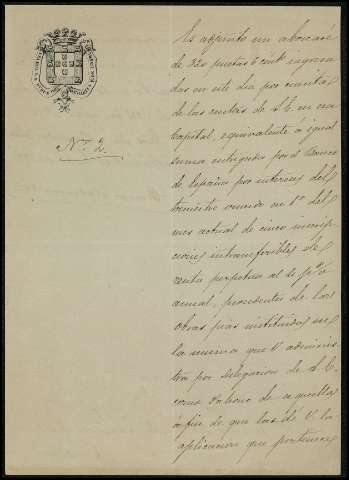 Nº 2.
Es adjunto un abonaré
de 320 pesetas 6 cents ingresa
das en este dia por cuenta
de las rentas de S. E. en esa
Capital, equivalente á igual
suma entregada por el Banco
de España por intereses del
trimestre vencido en 1º del
mes actual de cinco inscrip
ciones intransferibles de
renta perpetua al 4 pº%
anual, procedentes de las
Obras pias instituidas en
la misma que V. adminis
tra por delegacion de S. E.
como Patrono de aquellas
á fin de que las dé V. la
aplicacion que